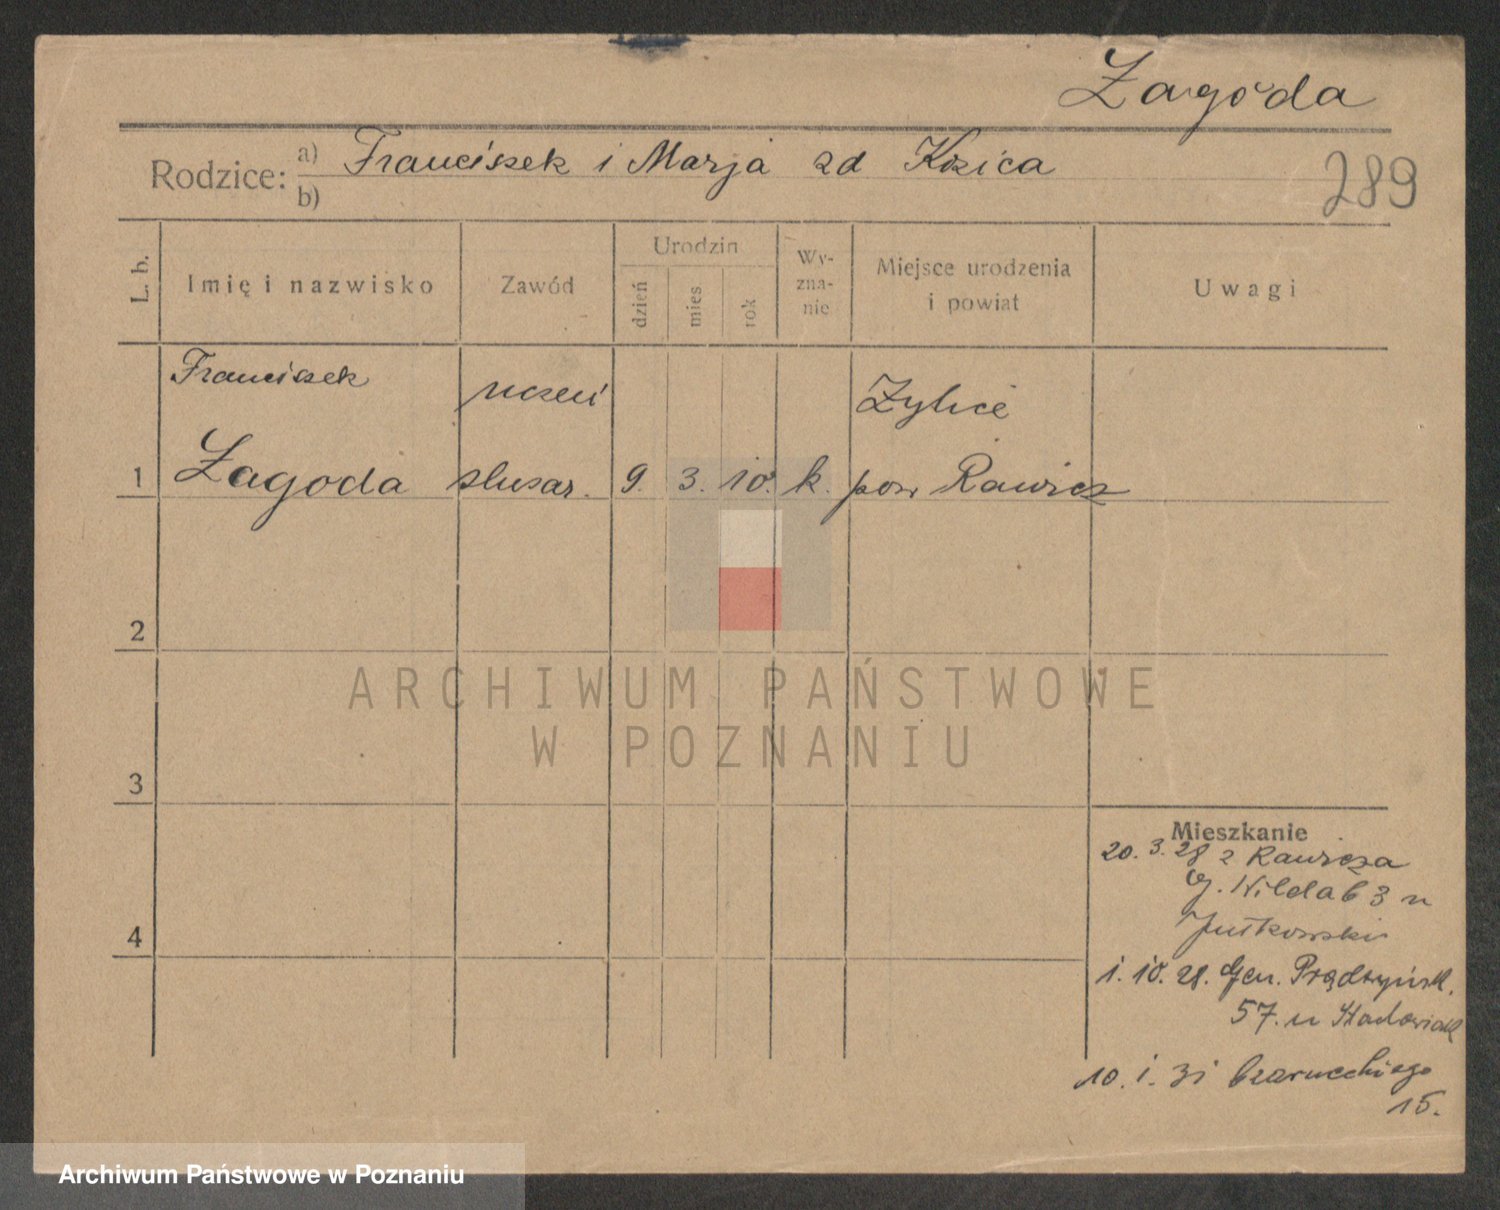 Żagoda
Rodzice: a) Franciszek i Marja zd Kozica
b)
289
L. b. Imię i nazwisko Zawód Urodzin dzień mies. rok Wy-zna-nie Miejsce urodzenia i powiat Uwagi
Franciszek uczeń Żylice
1 Żagoda slusar. 9. 3. 10. k. pow Rawicz
2
ARCHIWUM PAŃSTWOWE
W POZNANIU
3
Mieszkanie
20. 3. 28 z Rawicza
G. Wilda 63 u
Jutkowski
4
1. 10. 28. Gen. Prądzyńsk.
57. u
10. 1. 31 15.
Archiwum Państwowe w Poznaniu